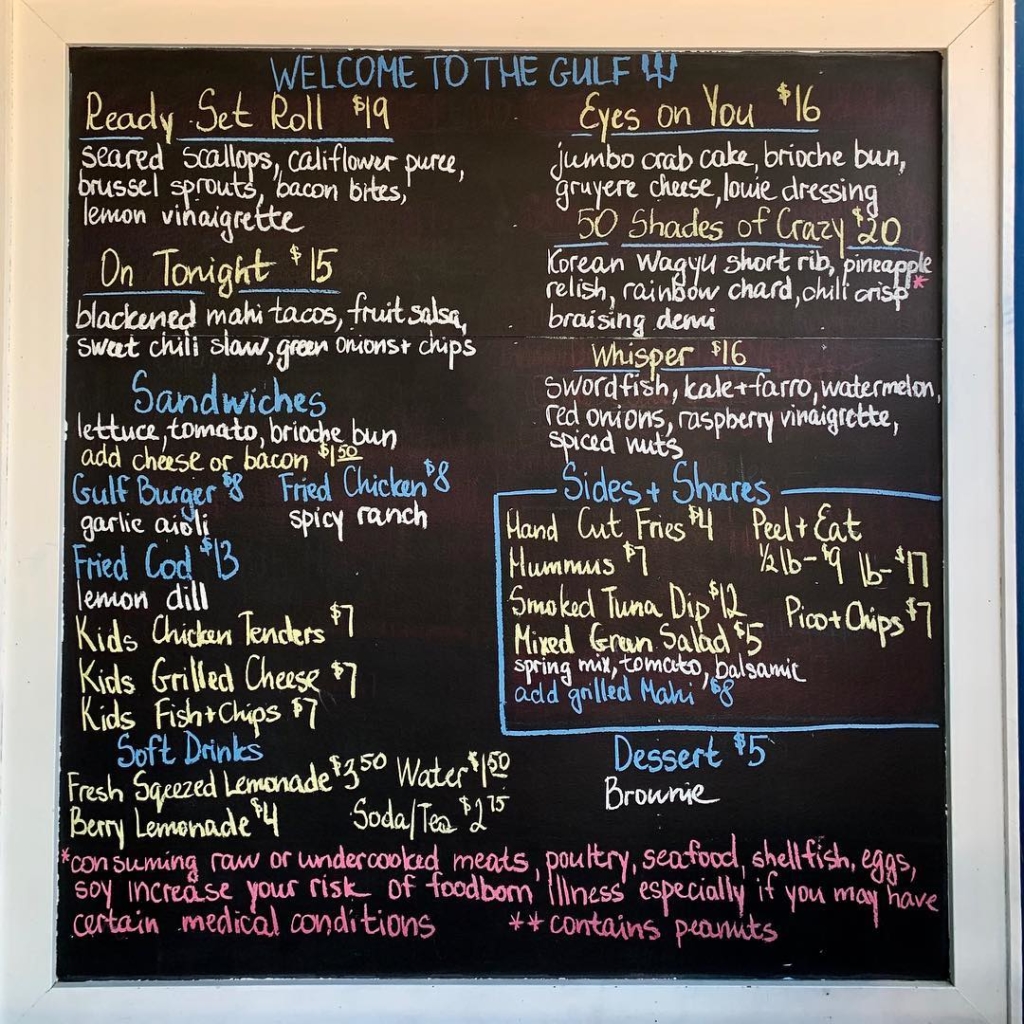 WELCOME TO THE GULF
Ready Set Roll $19
seared scallops, califlower puree,
brussel sprouts, bacon bites,
lemon vinaigrette
On Tonight $15
blackened mahi tacos, fruit salsa,
sweet chili slaw, green onions + chips
Sandwiches
lettuce, tomato, brioche bun
add cheese or bacon $1.50
Gulf Burger $8 Fried Chicken $8
garlic aioli spicy ranch
Fried Cod $13
lemon dill
Kids Chicken Tenders $7
Kids Grilled Cheese $7
Kids Fish + Chips $7
Soft Drinks
Fresh Sqeezed Lemonade $3 50 Water $1 50
Berry Lemonade $4 Soda/Tea $2 75
Eyes on You $16
jumbo crab cake, brioche bun,
gruyere cheese, louie dressing
50 Shades of Crazy $20
Korean Wagyu short rib, pineapple
relish, rainbow chard, chili crisp *
braising demi
Whisper $16
swordfish, kale + farro, watermelon,
red onions, raspberry vinaigrette,
spiced nuts
Sides + Shares
Hand Cut Fries $4
Hummus $7
Smoked Tuna Dip $12
Mixed Green Salad $5
spring mix, tomato, balsamic
add grilled Mahi $8
Peel + Eat
1/2 lb - $9 lb - $17
Pico + Chips $7
Dessert $5
Brownie
*consuming raw or undercooked meats, poultry, seafood, shellfish, eggs,
soy increase your risk of foodborn Illness especially if you may have
certain medical conditions **contains peanuts